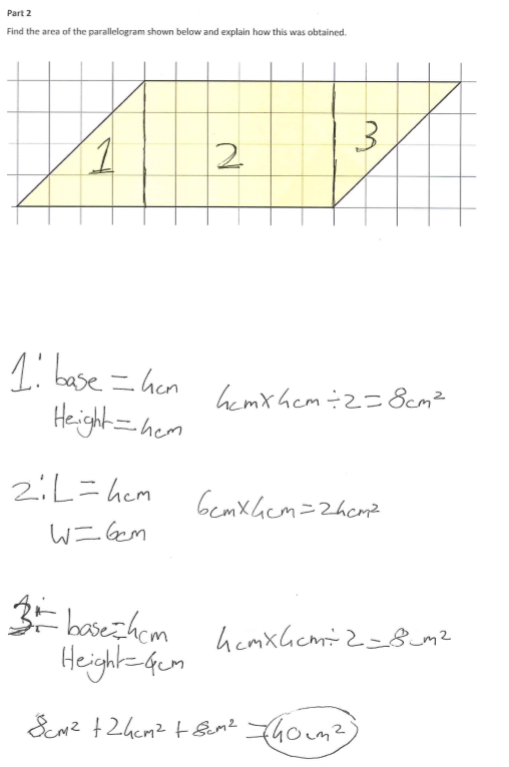 Part 2
Find the area of the parallelogram shown below and explain how this was obtained.
1 2 3
1: base = 4cm
Height = 4cm
4cm x 4cm ÷ 2 = 8cm²
2: L = 4cm
W = 6cm
6cm x 4cm = 24cm²
3: base = 4cm
Height = 4cm
4cm x 4cm ÷ 2 = 8cm²
8cm² + 24cm² + 8cm² = 40cm²